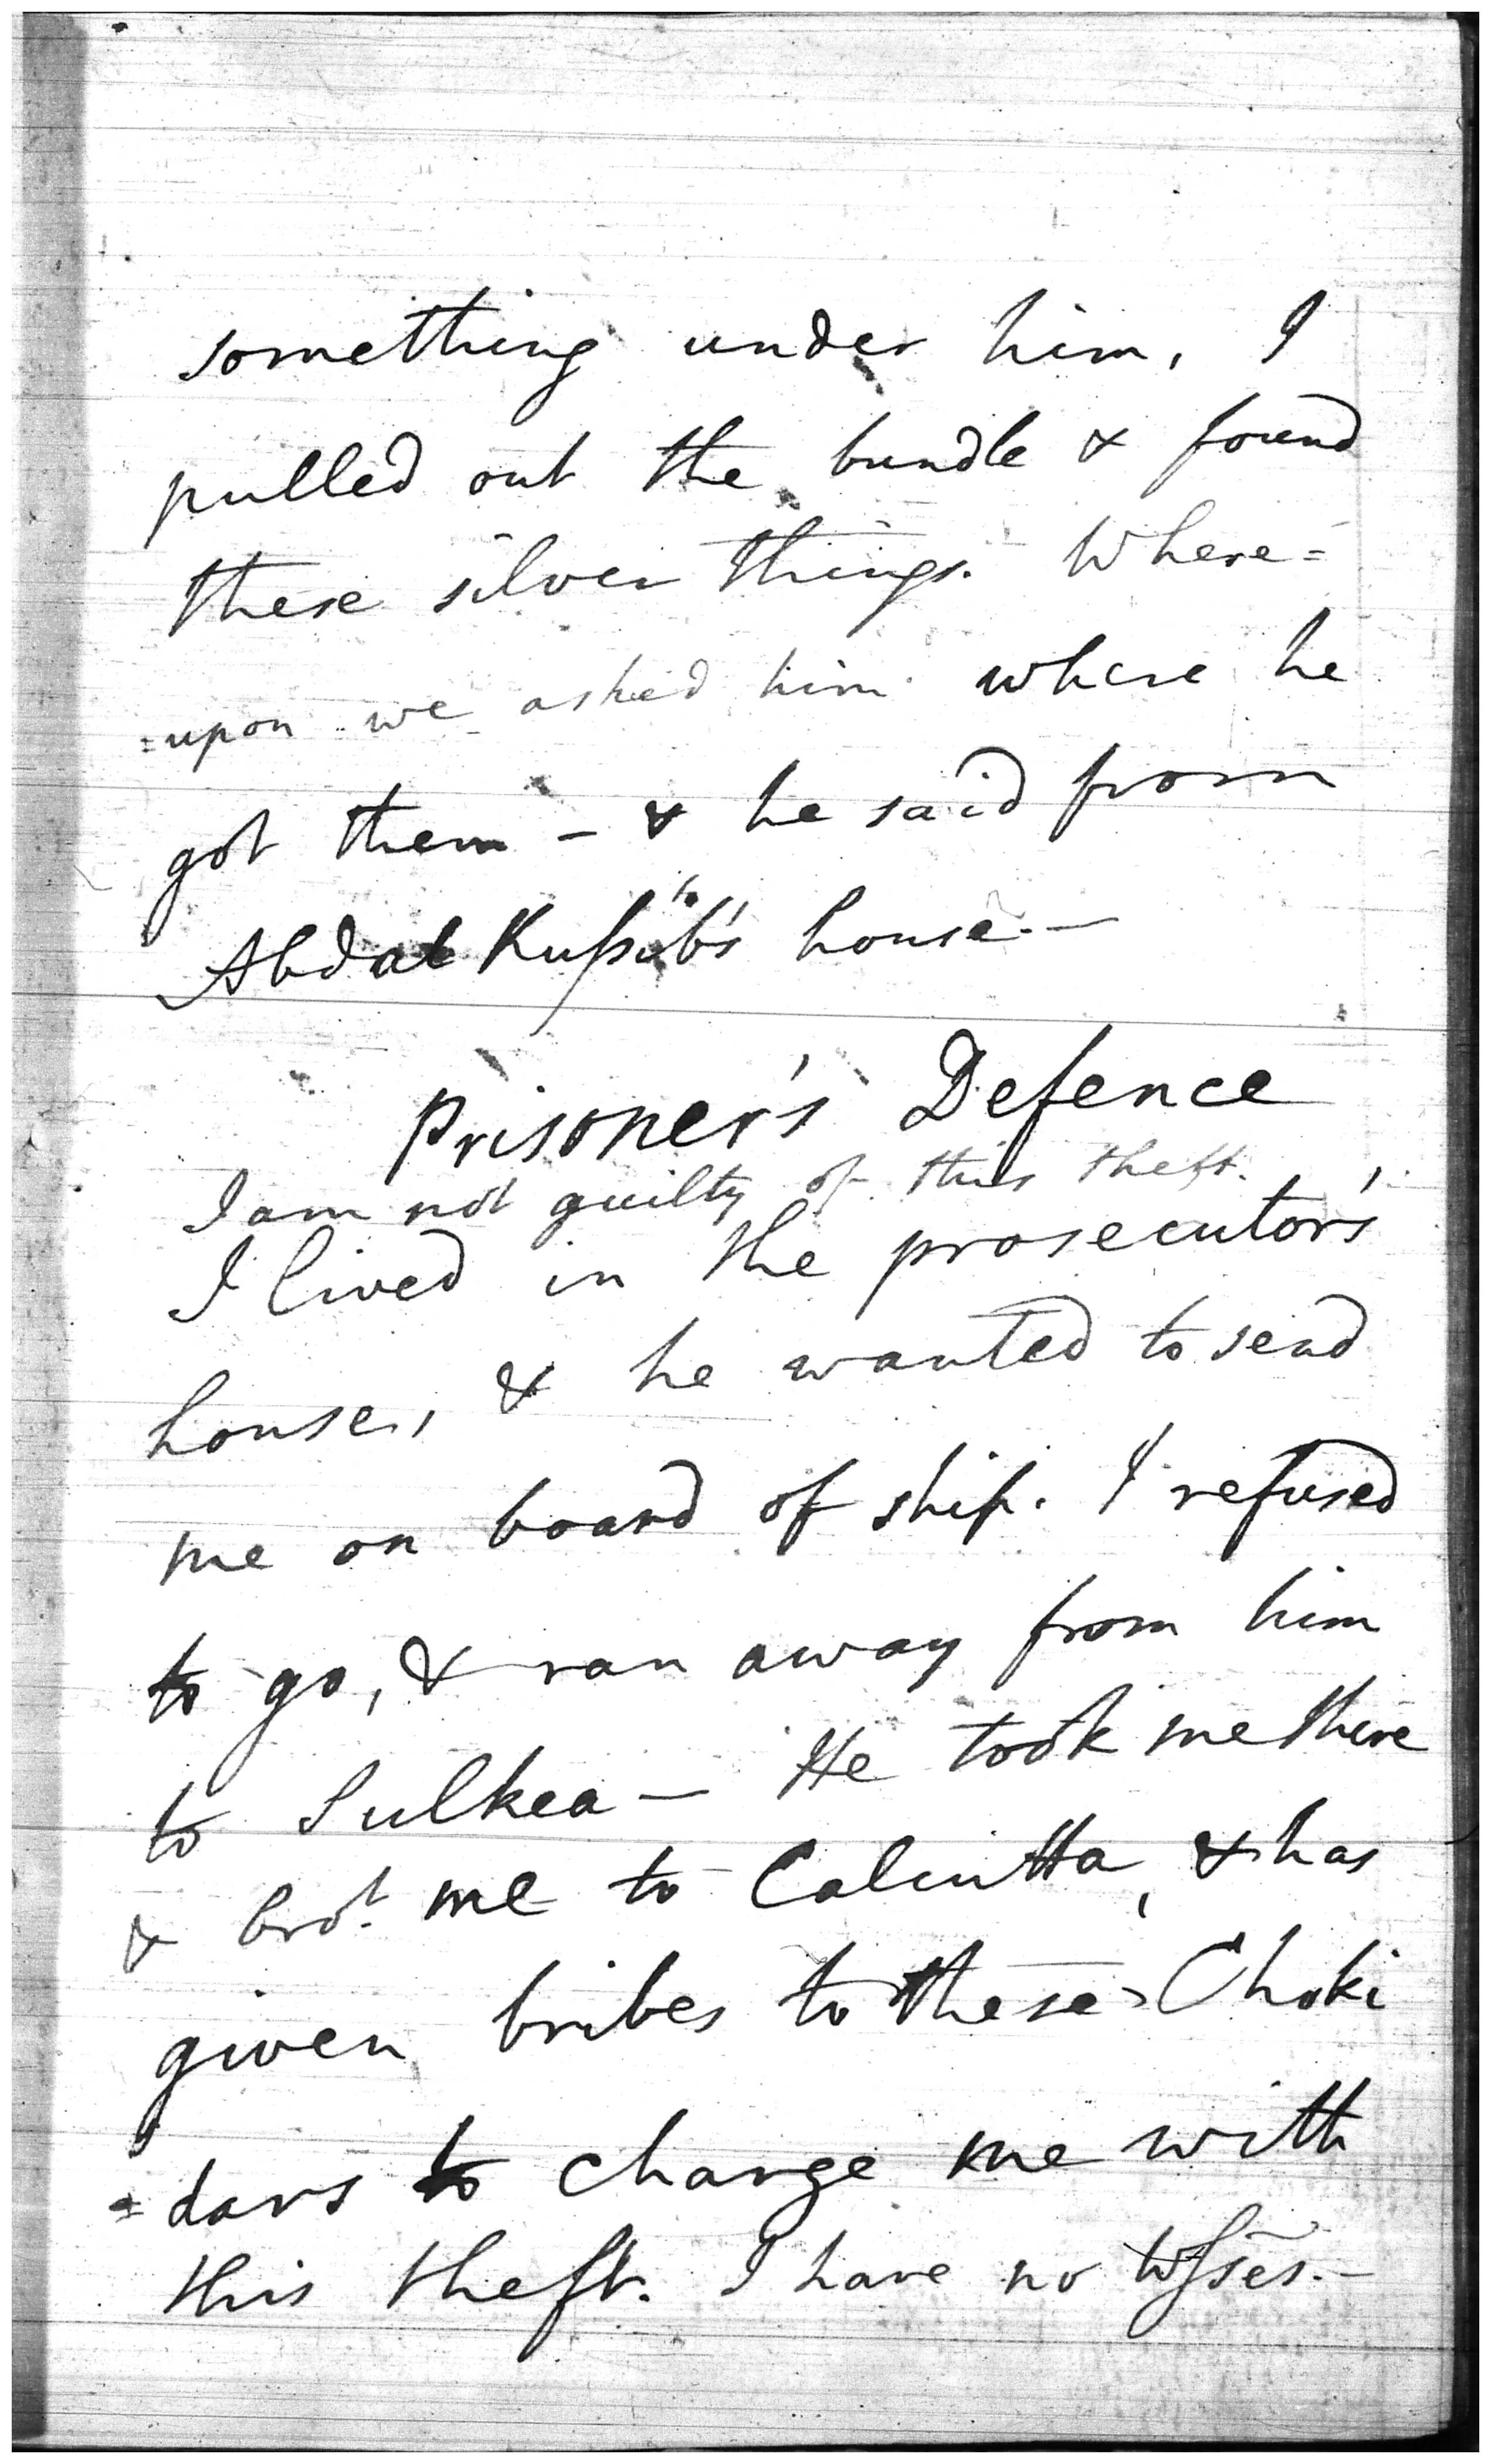 something under him, I
pulled out the bundle & found
these silver things. Where=
=upon we asked him where he
got them - & he said from
Abdal Kussib's house. -
Prisoner's Defence
I am not guilty of this theft.
I lived in the prosecutor's
house, & he wanted to send
me on board of ship. I refused
to go, & ran away from him
to Sulkea - He took me there
& bro.t me to Calcutta, & has
given bribes to these Choki
=dars to charge me with
this theft. I have no Wsses. -